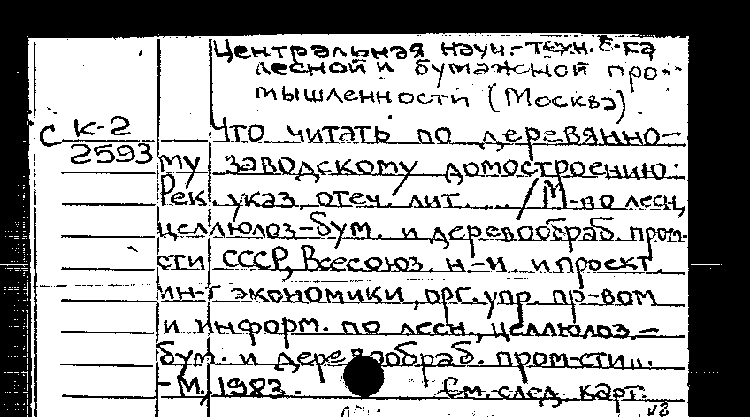 Центральная науч.-техн. б-ка
лесной и бумажной про-
мышленности (Москва)
С К-2
2593
Что читать по деревянно-
му заводскому домостроению:
Рек. указ. отеч. лит. ... / М-во лесн.,
целлюлоз-бум. и деревообраб. пром-
сти СССР, Всесоюз. н.-и. и проект.
ин-т экономики, орг. упр. пр-вом
и информ. по лесн., целлюлоз.-
бум. и деревообраб. пром-сти...
-М., 1983.
См. след. карт.